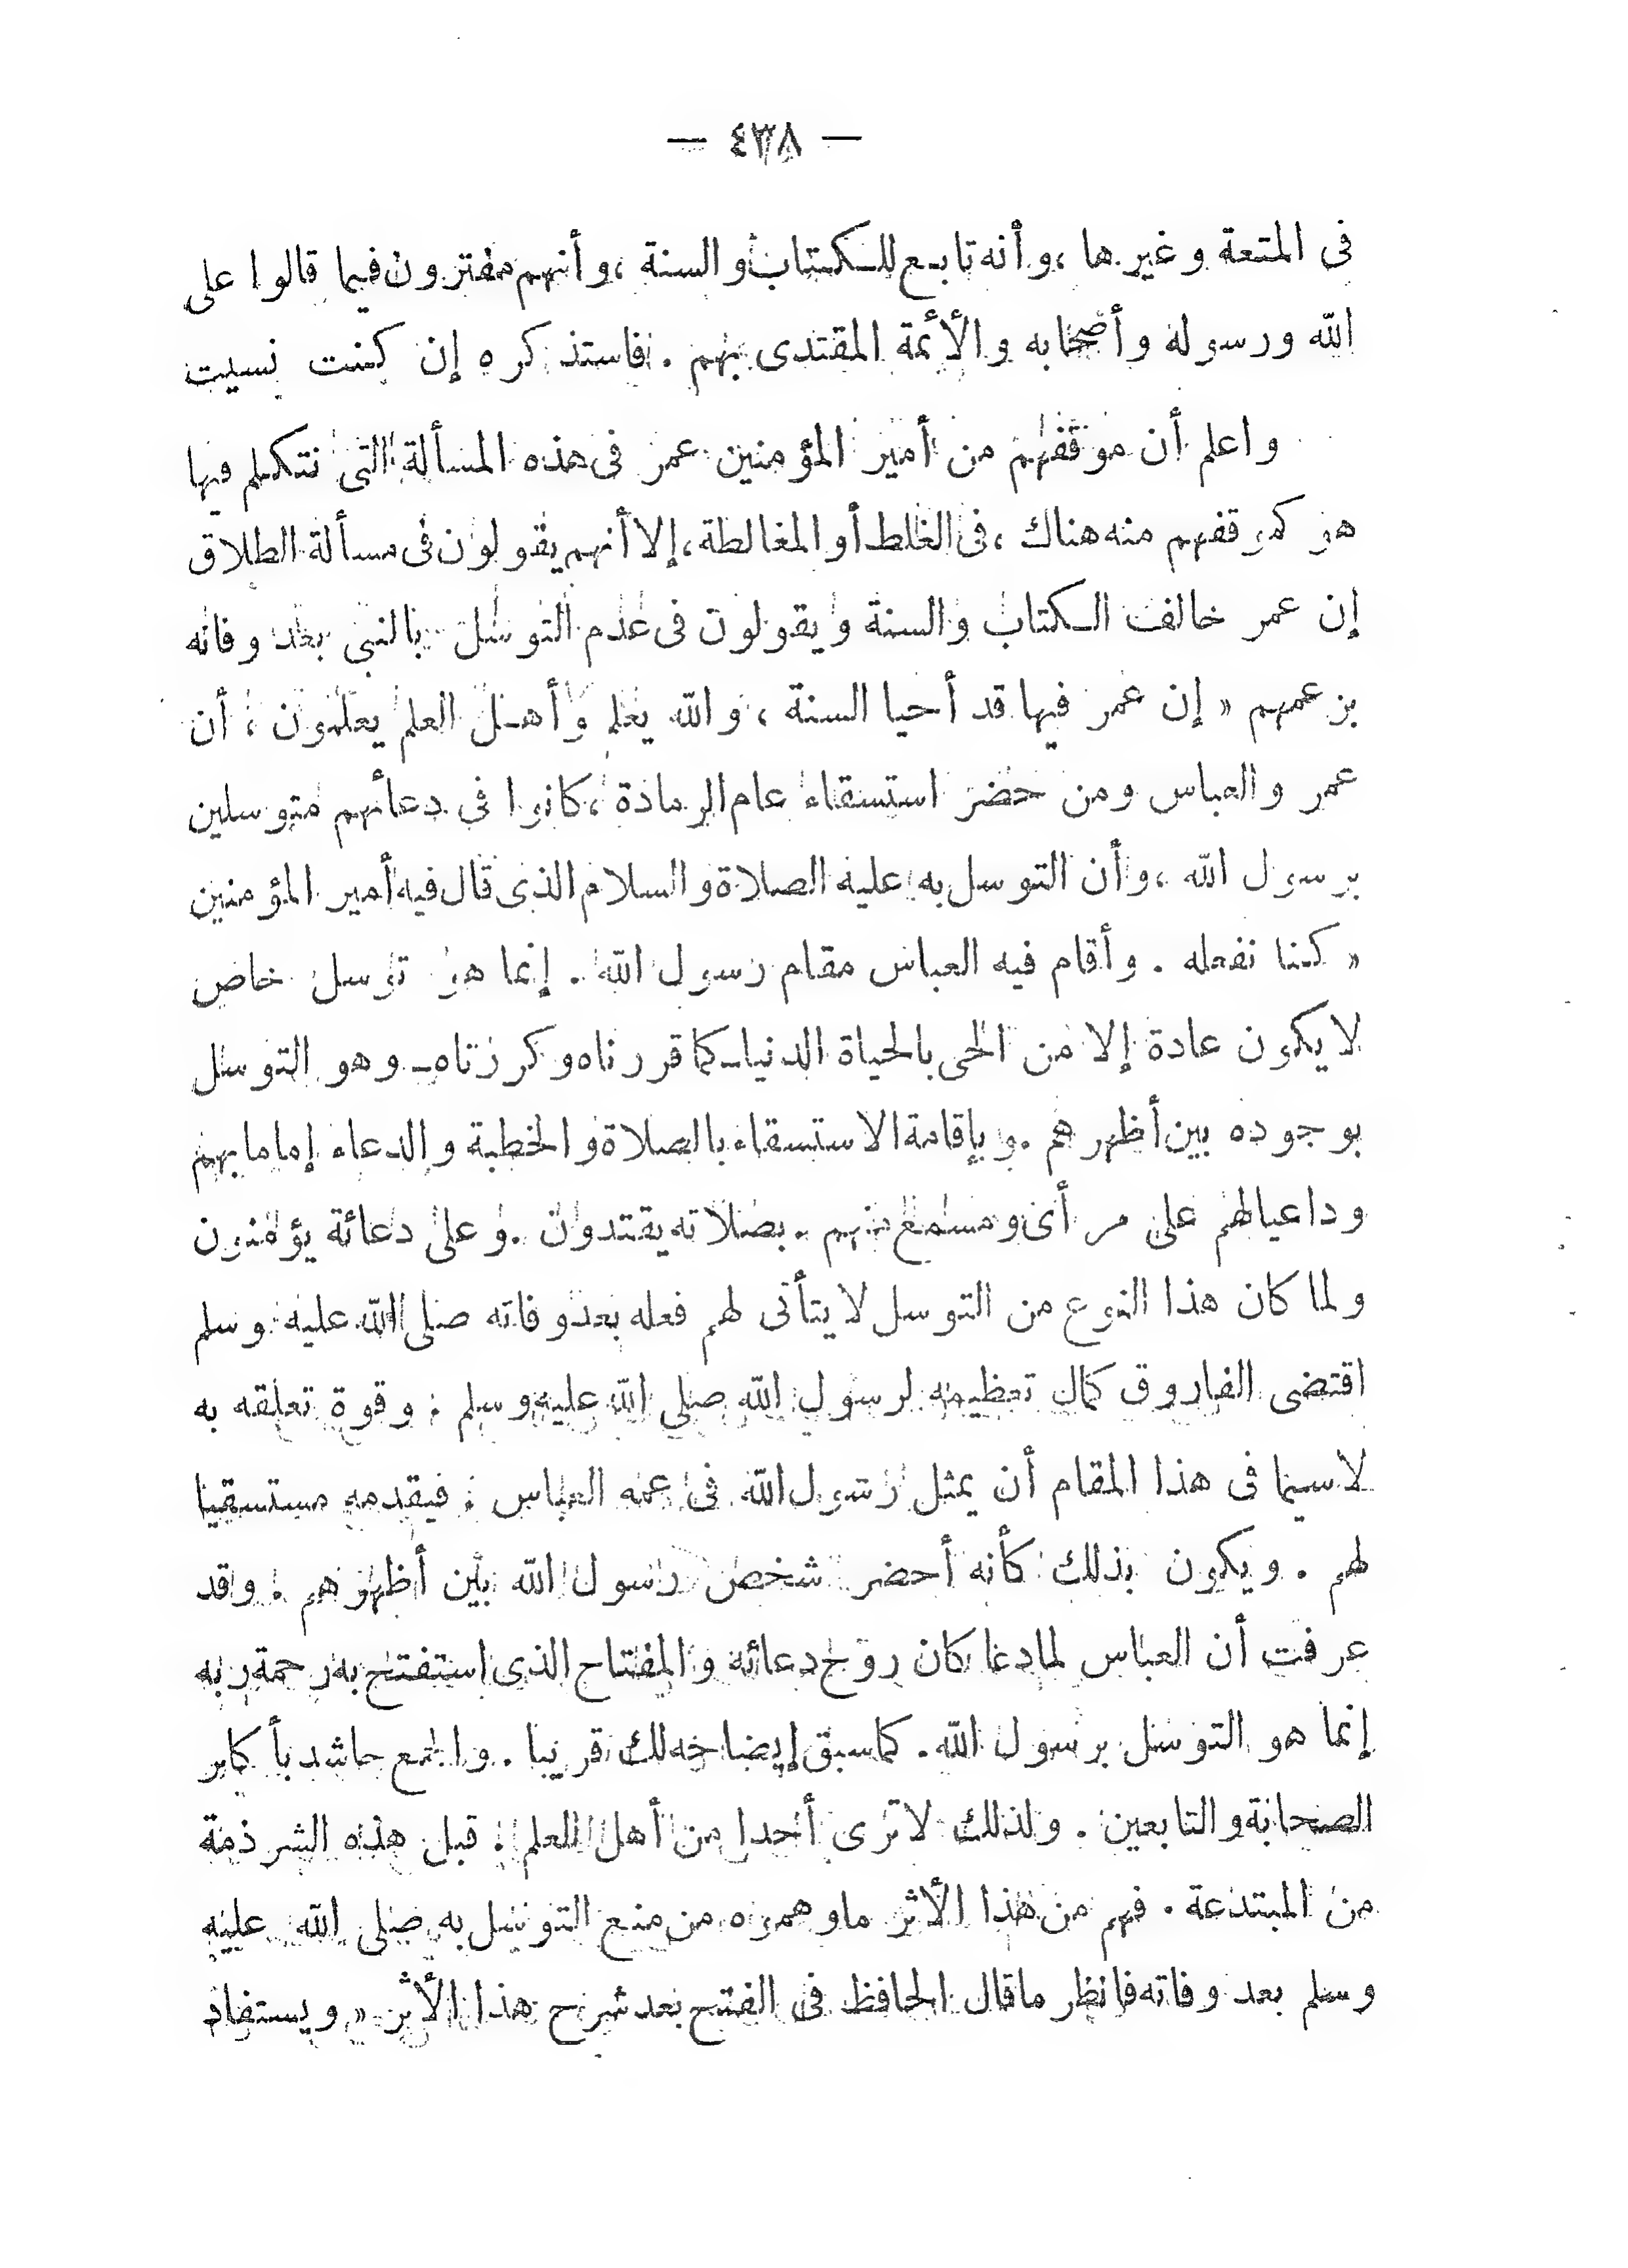 — ٤٣٨ —
فى المتعة وغيرها ، وأنه تابع للكتاب والسنة ، وأنهم مفترون فيما قالوا على
الله ورسوله وأصحابه والأئمة المقتدى بهم . فاستذكره إن كنت نسيت
واعلم أن موقفهم من أمير المؤمنين عمر فى هذه المسألة التى نتكلم فيها
هو كموقفهم منه هناك ، فى الغلط أو المغالطة ، إلا أنهم يقولون فى مسألة الطلاق
إن عمر خالف الكتاب والسنة ويقولون فى عدم التوسل بالنبى بعد وفاته
بزعمهم « إن عمر فيها قد أحيا السنة ، والله يعلم وأهل العلم يعلمون ، أن
عمر والعباس ومن حضر استسقاء عام الرمادة ، كانوا فى دعائهم متوسلين
برسول الله ، وأن التوسل به عليه الصلاة والسلام الذى قال فيه أمير المؤمنين
« كنا نفعله . وأقام فيه العباس مقام رسول الله . إنما هو توسل خاص
لا يكون عادة إلا من الحى بالحياة الدنيا ـ كما قررناه وكررناه ـ وهو التوسل
بوجوده بين أظهرهم . وبإقامة الاستسقاء بالصلاة والخطبة والدعاء إماما بهم
وداعيا لهم على مرأى ومسمع منهم . بصلاته يقتدون . وعلى دعائة يؤمنون
ولما كان هذا النوع من التوسل لا يتأتى لهم فعله بعد وفاته صلى الله عليه وسلم
اقتضى الفاروق كمال تعظيمه لرسول الله صلى الله عليه وسلم ، وقوة تعلقه به
لا سيما فى هذا المقام أن يمثل رسول الله فى عمه العباس ، فيقدمه مستسقيا
لهم . ويكون بذلك كأنه أحضر شخص رسول الله بين أظهرهم . وقد
عرفت أن العباس لما دعا كان روح دعائه والمفتاح الذى استفتح به رحمة ربه
إنما هو التوسل برسول الله . كما سبق إيضاحه لك قريبا . والجمع حاشد بأكابر
الصحابة والتابعين . ولذلك لا ترى أحدا من أهل العلم . قبل هذه الشرذمة
من المبتدعة . فهم من هذا الأثر ما وهموه من منع التوسل به صلى الله عليه
وسلم بعد وفاته فانظر ما قال الحافظ فى الفتح بعد شرح هذا الأثر « ويستفاد